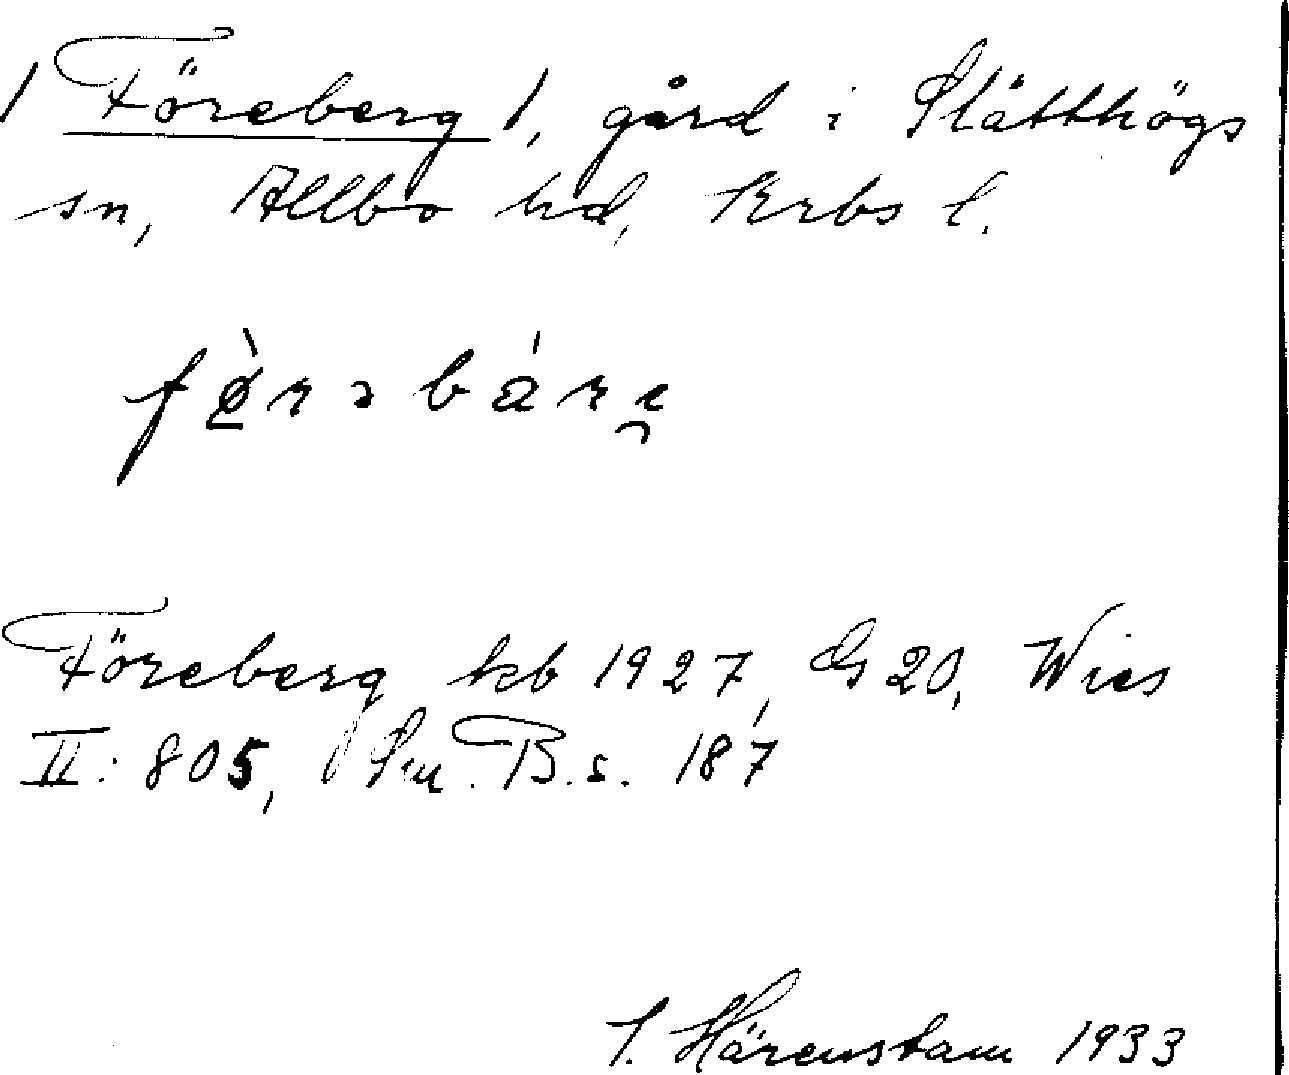 / Föreberg /, gård i Slätthögs
sn, Allbo hd, Krbs l.
fø̀rəbárɪ
Föreberg kb 1927, G 20, Wies
II: 805, Sm. B. s. 187
J. Härenstam 1933